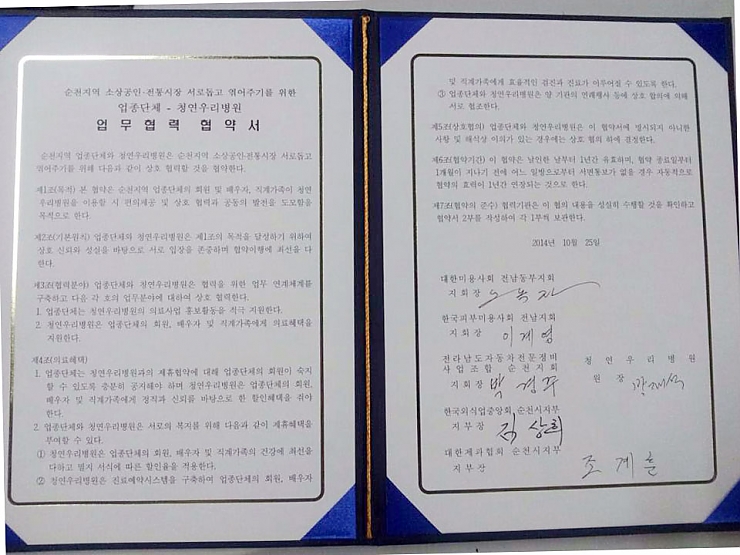 순천지역 소상공인·전통시장 서로돕고 엮어주기를 위한
업종단체 - 청연우리병원
업 무 협 력 협 약 서
순천지역 업종단체와 청연우리병원은 순천지역 소상공인·전통시장 서로돕고
엮어주기를 위해 다음과 같이 상호 협력할 것을 협약한다.
제1조(목적) 본 협약은 순천지역 업종단체의 회원 및 배우자, 직계가족이 청연
우리병원을 이용할 시 편의제공 및 상호 협력과 공동의 발전을 도모함을
목적으로 한다.
제2조(기본원칙) 업종단체와 청연우리병원은 제1조의 목적을 달성하기 위하여
상호 신뢰와 성실을 바탕으로 서로 입장을 존중하며 협약이행에 최선을 다
한다.
제3조(협력분야) 업종단체와 청연우리병원은 협력을 위한 업무 연계체계를
구축하고 다음 각 호의 업무분야에 대하여 상호 협력한다.
1. 업종단체는 청연우리병원의 의료사업 홍보활동을 적극 지원한다.
2. 청연우리병원은 업종단체의 회원, 배우자 및 직계가족에게 의료혜택을
지원한다.
제4조(의료혜택)
1. 업종단체는 청연우리병원과의 제휴협약에 대해 업종단체의 회원이 숙지
할 수 있도록 충분히 공지해야 하며 청연우리병원은 업종단체의 회원,
배우자 및 직계가족에게 정직과 신뢰를 바탕으로 한 할인혜택을 줘야
한다.
2. 업종단체와 청연우리병원은 서로의 복지를 위해 다음과 같이 제휴혜택을
부여할 수 있다.
① 청연우리병원은 업종단체의 회원, 배우자 및 직계가족의 건강에 최선을
다하고 별지 서식에 따른 할인율을 적용한다.
② 청연우리병원은 진료예약시스템을 구축하여 업종단체의 회원, 배우자
및 직계가족에게 효율적인 검진과 진료가 이루어질 수 있도록 한다.
③ 업종단체와 청연우리병원은 양 기관의 연례행사 등에 상호 합의에 의해
서로 협조한다.
제5조(상호협의) 업종단체와 청연우리병원은 이 협약서에 명시되지 아니한
사항 및 해석상 이의가 있는 경우에는 상호 협의 하에 결정한다.
제6조(협약기간) 이 협약은 날인한 날부터 1년간 유효하며, 협약 종료일부터
1개월이 지나기 전에 어느 일방으로부터 서면통보가 없을 경우 자동적으로
협약의 효력이 1년간 연장되는 것으로 한다.
제7조(협약의 준수) 협력기관은 이 협의 내용을 성실히 수행할 것을 확인하고
협약서 2부를 작성하여 각 1부씩 보관한다.
2014년 10월 25일
대한미용사회 전남동부지회
지 회 장
한국피부미용사회 전남지회
지 회 장 이 계 영
전라남도자동차전문정비 청 연 우 리 병 원
사 업 조 합 순 천 지 회 원 장
지 회 장 박 경 무
한국외식업중앙회 순천시지부
지 부 장 김 상 희
대한제과협회 순천시지부
지 부 장 조 계 훈